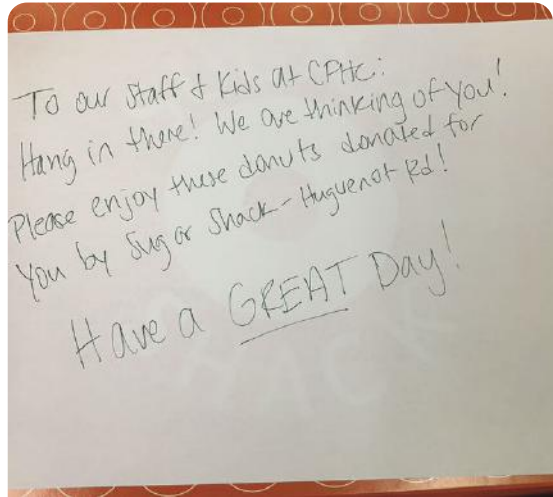 To our Staff & Kids at CPHC:
Hang in there! We are thinking of You!
Please enjoy these donuts donated for
You by Sugar Shack - Huguenot Rd!
Have a GREAT Day!